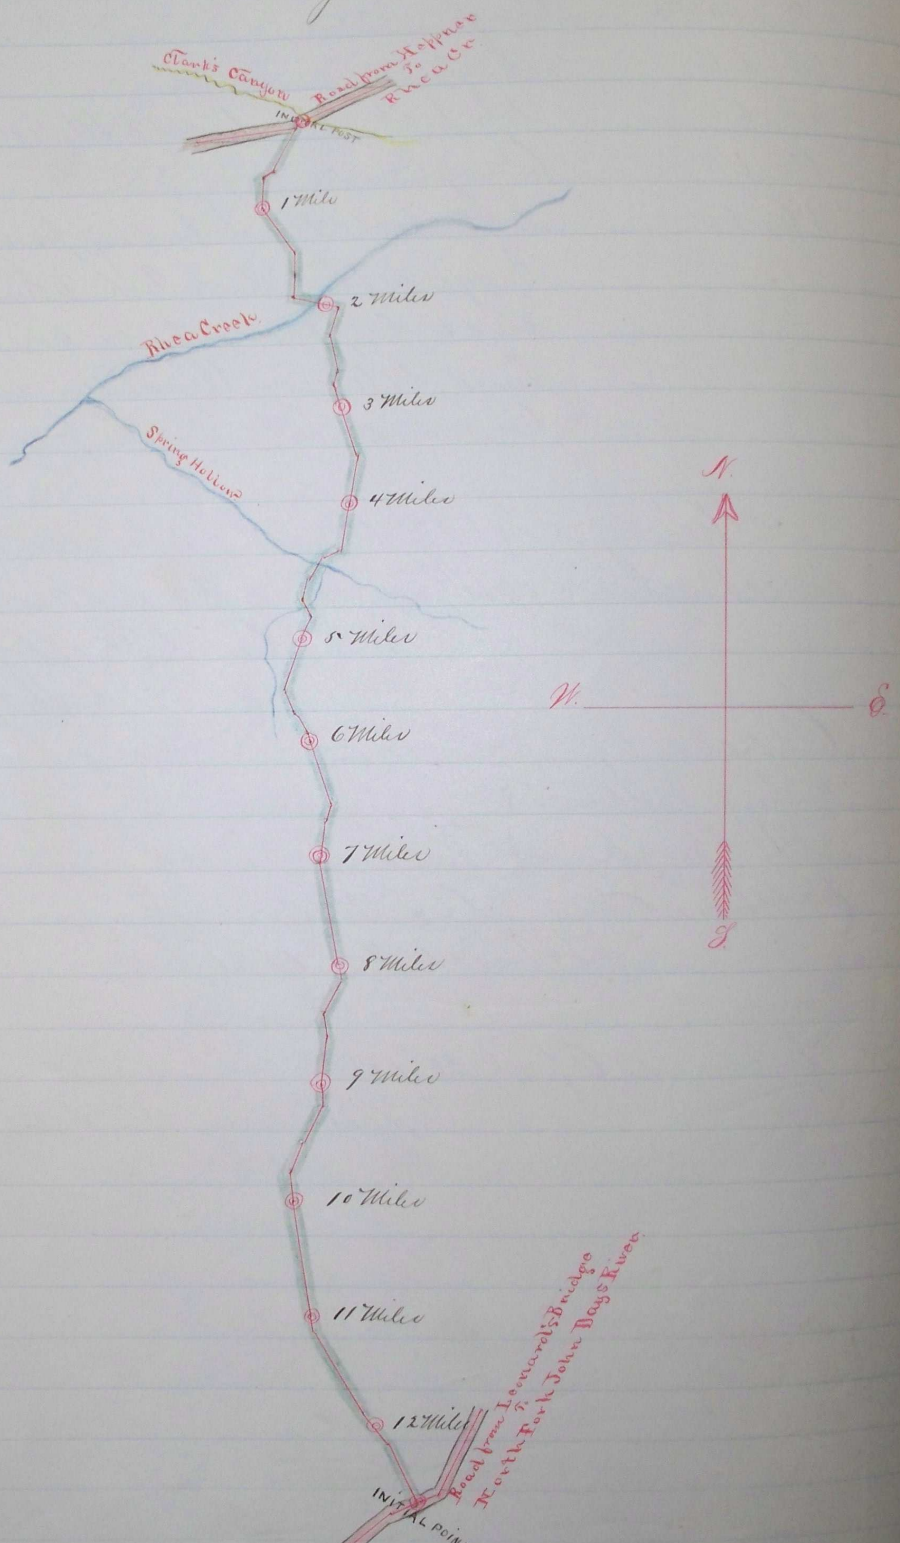 Clark's Canyon
Road from Heppner
To
Rhea Cr
INITIAL POST
1 Mile
2 Miles
Rhea Creek
3 Miles
Spring Hollow
4 Miles
N.
5 Miles
W. E.
6 Miles
7 Miles
S.
8 Miles
9 Miles
10 Miles
11 Miles
12 Miles
Road from Leonard's Bridge
To
North Fork John Days River
INITIAL POIN